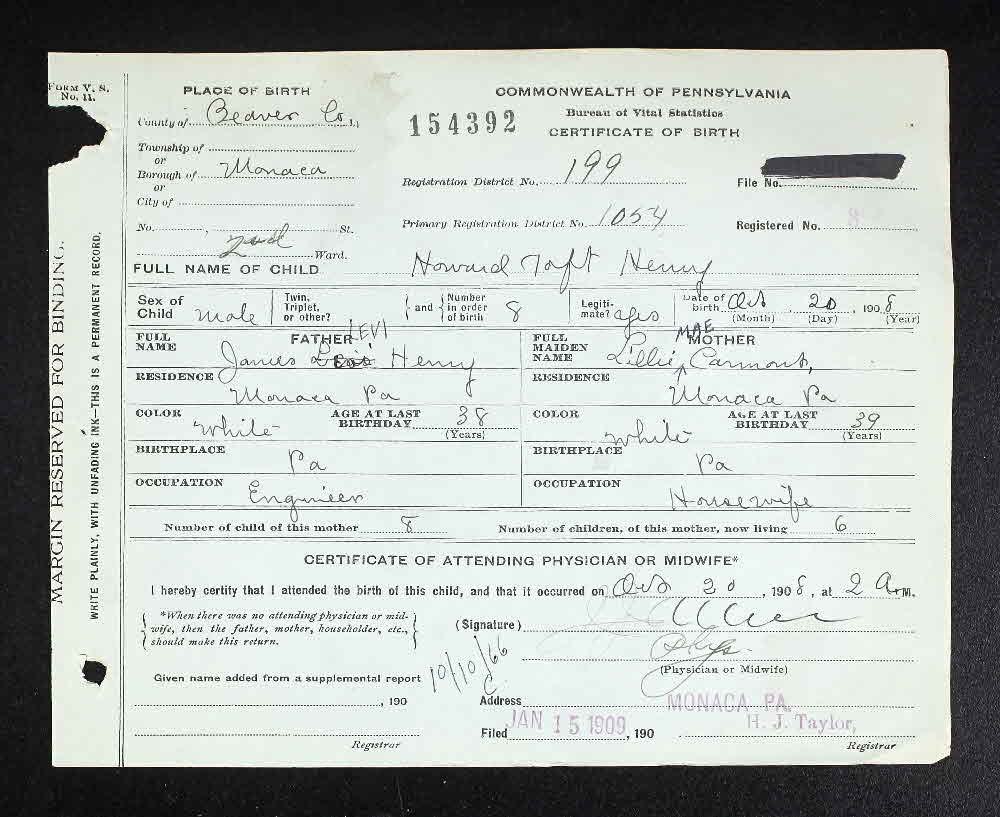 FORM V. S.
No. 11.
PLACE OF BIRTH
County of Beaver Co.,
Township of
or
Borough of Monaca
or
City of
No. , St.
2nd Ward.
COMMONWEALTH OF PENNSYLVANIA
Bureau of Vital Statistics
154392
CERTIFICATE OF BIRTH
Registration District No. 199
File No.
Primary Registration District No. 1054
Registered No. 8
FULL NAME OF CHILD Howard Taft Henry
Sex of Child Male
Twin, Triplet, or other?
and Number in order of birth 8
Legitimate? Yes
Date of birth Oct 20, 1908
(Month) (Day) (Year)
FATHER
FULL NAME James Levi Henry
LEVI
RESIDENCE Monaca Pa
COLOR White
AGE AT LAST BIRTHDAY 38
(Years)
BIRTHPLACE Pa
OCCUPATION Engineer
MOTHER
FULL MAIDEN NAME Lillie MAE Carmont,
RESIDENCE Monaca Pa
COLOR White
AGE AT LAST BIRTHDAY 39
(Years)
BIRTHPLACE Pa
OCCUPATION Housewife
Number of child of this mother 8
Number of children, of this mother, now living 6
CERTIFICATE OF ATTENDING PHYSICIAN OR MIDWIFE*
I hereby certify that I attended the birth of this child, and that it occurred on Oct 20, 1908, at 2 A.M.
*When there was no attending physician or midwife, then the father, mother, householder, etc., should make this return.
(Signature)
Phys.
(Physician or Midwife)
Given name added from a supplemental report 10/10/66
, 190
Address MONACA PA.
Filed JAN 15 1909, 190
H. J. Taylor,
Registrar
Registrar
MARGIN RESERVED FOR BINDING.
WRITE PLAINLY, WITH UNFADING INK—THIS IS A PERMANENT RECORD.